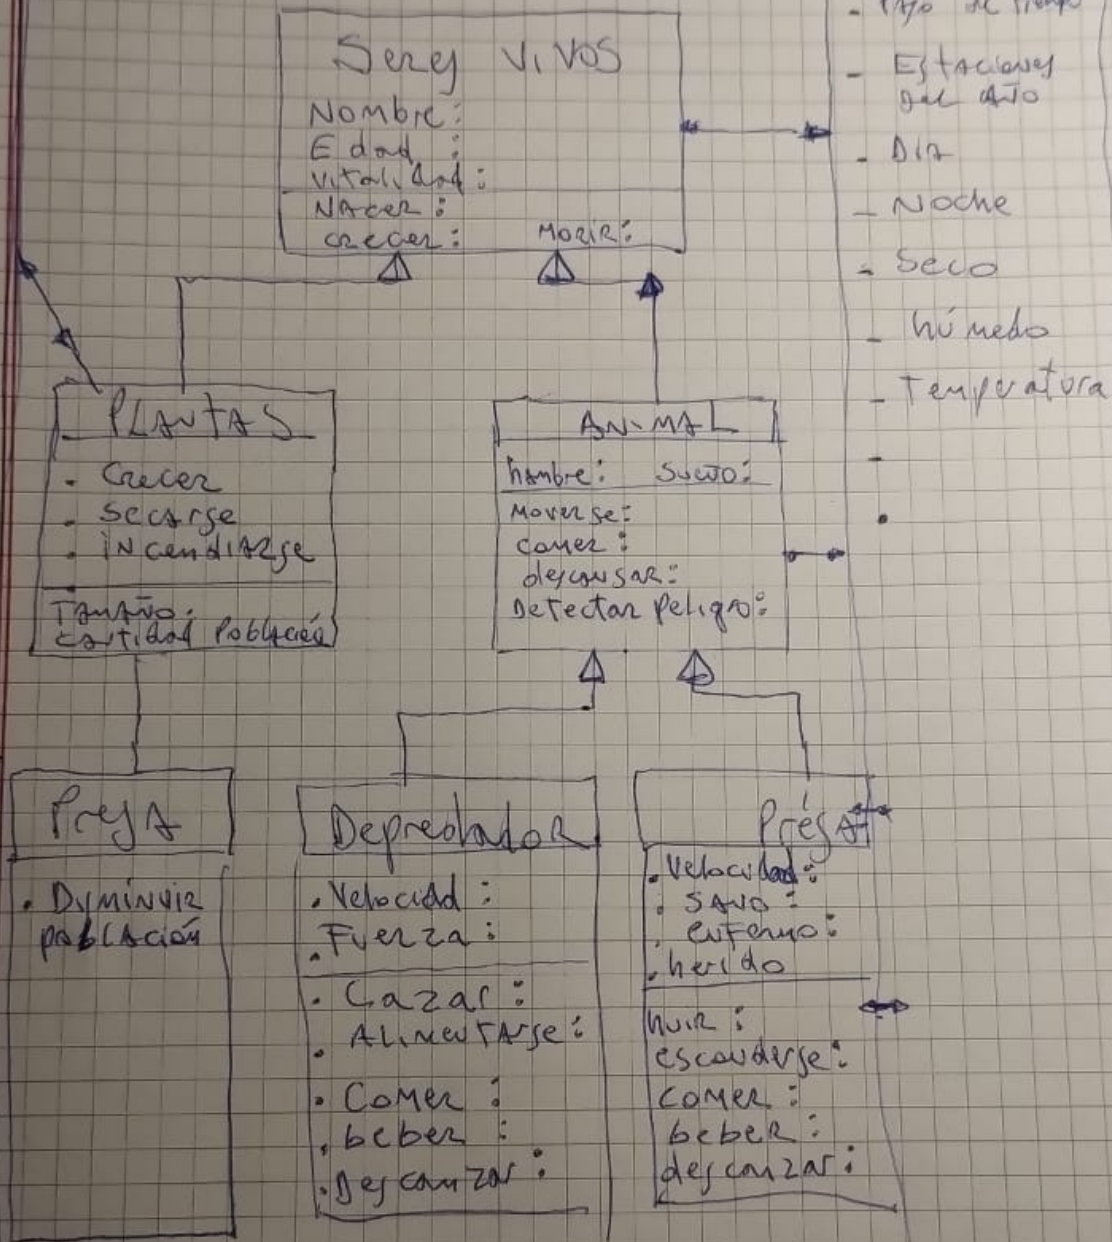 Seres Vivos
Nombre:
Edad :
Vitalidad:
Nacer:
crecer: Morir:
- Estaciones
del Año
- Dia
- Noche
- Seco
- húmedo
- Temperatura
PLANTAS
. Crecer
. Secarse
. incendiarse
Tamaño:
cantidad Población
ANIMAL
hambre: Sueño:
Moverse:
comer:
descansar:
Detectar Peligro:
Presa
. Disminuir
población
Depredador
. Velocidad :
. Fuerza :
. Cazar :
. Alimentarse:
. Comer :
. beber :
. Descanzar :
Présa
. Velocidad:
. Sano :
. enfermo:
. herido
huir :
esconderse:
comer :
beber :
descanzar: